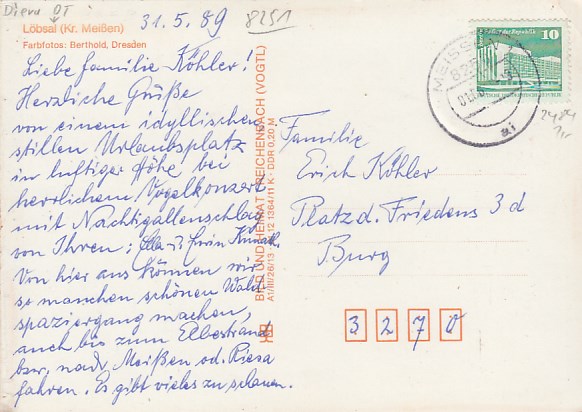 Diera OT
31.5.89
8251
Löbsal (Kr. Meißen)
Farbfotos: Berthold, Dresden
Liebe Familie Köhler!
Herzliche Grüße
von einem idyllischen
stillen Urlaubsplatz
in luftiger Höhe bei
herrlichem Vogelkonzert
mit Nachtigallenschlag
von Ihren; Ella u.
Von hier aus können wir
so manchen schönen Wald-
spaziergang machen,
auch bis zum Elbestrand
bzw. nach Meißen od. Riesa
fahren. Es gibt vieles zu schauen.
BILD UND HEIMAT REICHENBACH (VOGTL)
A1/III/26/13 12 1364/11 K · DDR 0,20 M
MEISSEN
10
Palast der Republik
2484
Familie
Erich Köhler
Platz d. Friedens 3 d
Burg
3270